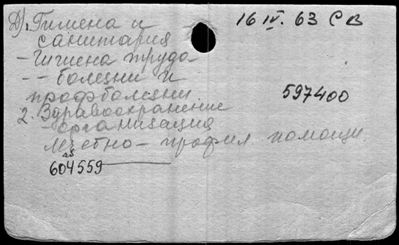 Д). Гигиена и
санитария
- Гигиена труда
- - болезни и
профболезни
2. Здравоохранение
организация
Лечебно - профил. помощи
604559
16 IV. 63 СВ
597400